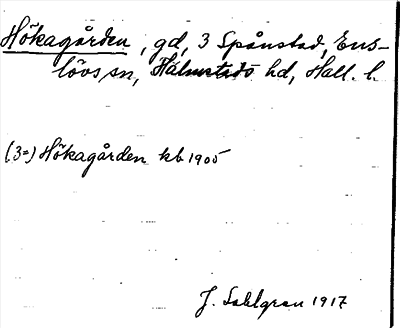 Hökagården, gd, 3 Spånstad, Ens-
lövs sn, Halmstads hd, Hall. l.
(3=) Hökagården kb 1905
J. Sahlgren 1917